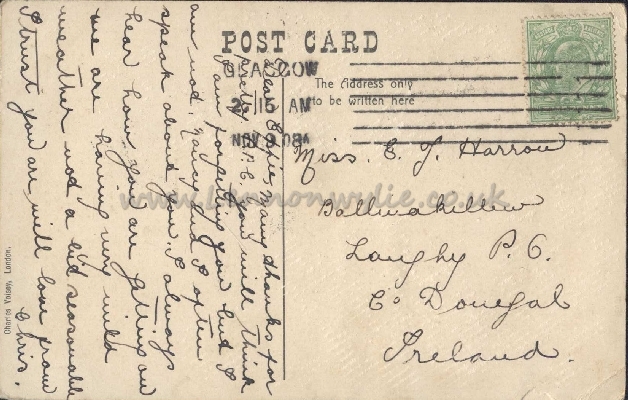 POST CARD
GLASGOW
2.15 AM
NOV 9 08
The Address only
to be written here
Dear Effie, many thanks for
pretty P.C. you will think
I am forgetting you but I
am not. Nancy and I often
speak about you. I always
hear how you are getting on
we are having very mild
weather not a bit seasonable
I trust you are well love from
Chris.
Miss. E. J. Harrow
Ballinakillew
Laughy P.O.
Co Donegal
Ireland.
Charles Voisey, London.